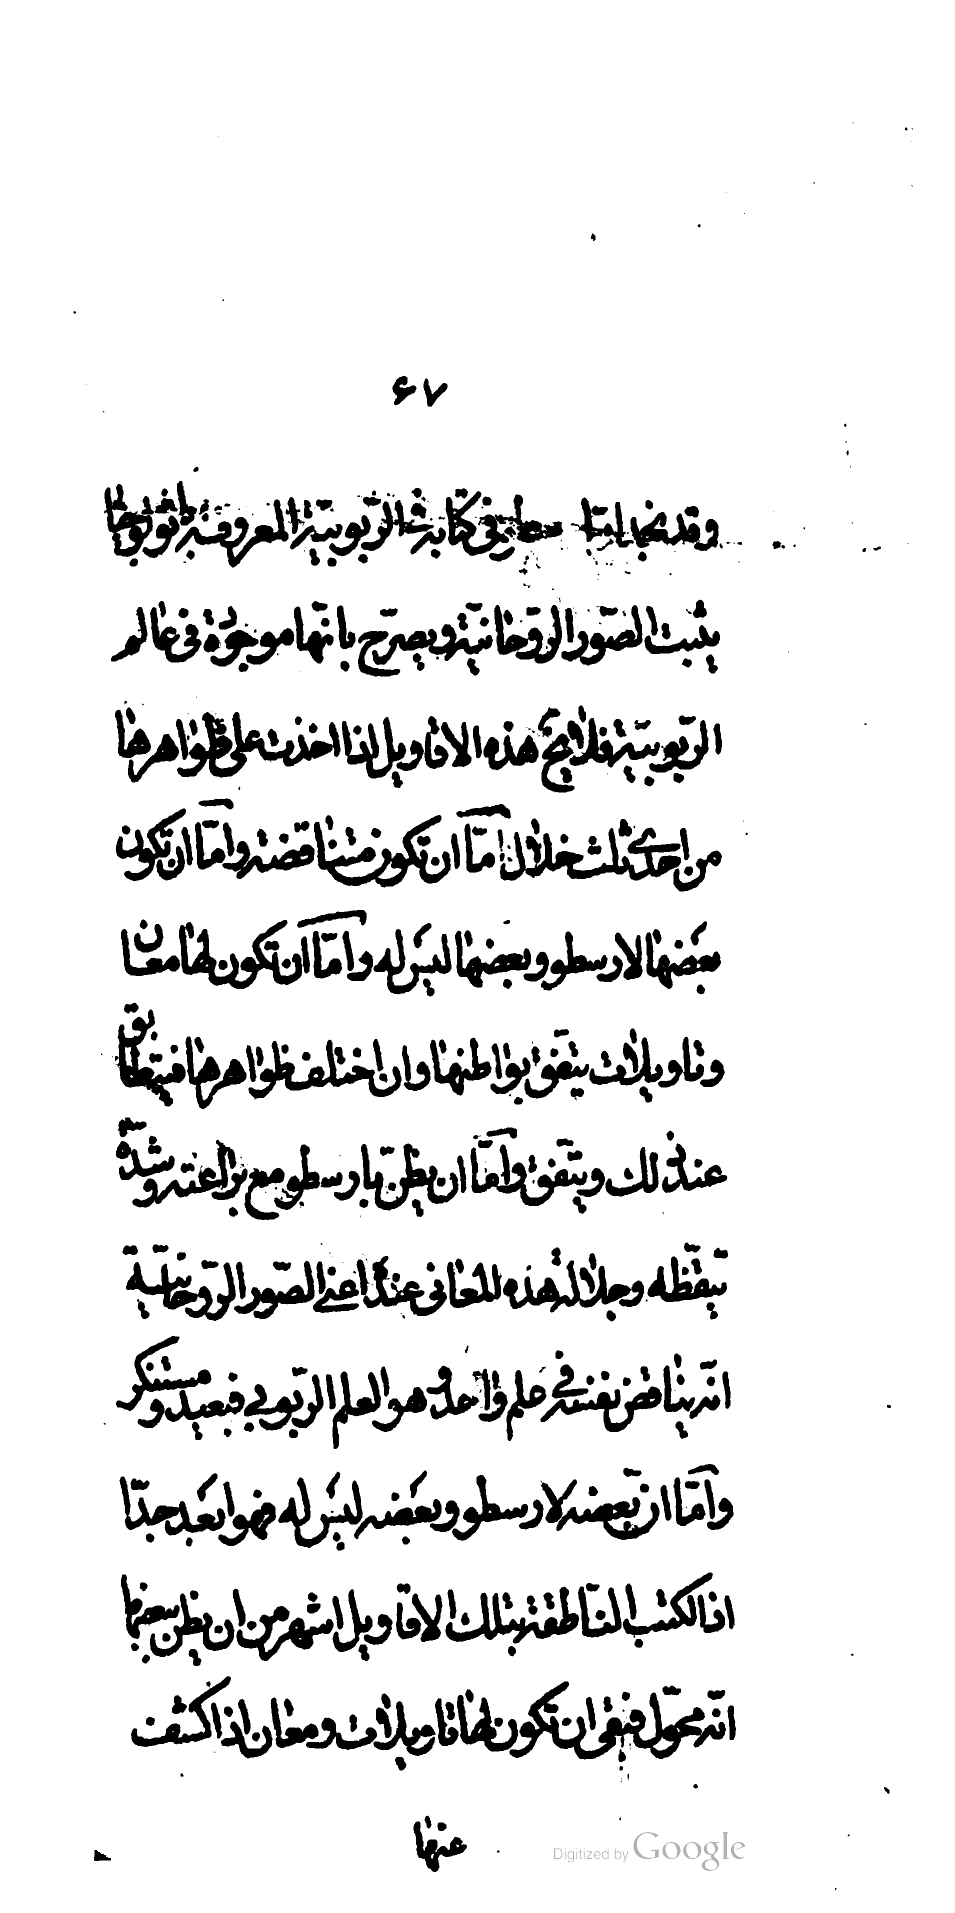 ۶۷
وقد نجد ارسطو في كتابه في الربوبية المعروف باثولوجيا
يثبت الصّور الروّحانيّة ويصرّح بانّها موجودة فى عالم
الرّبوبيّة فلا يخ هذه الاقاويل اذا اخذت على ظواهرها
من احدى ثلث خلال امّا ان تكون متناقضة وامّا ان تكون
بعضها لارسطو وبعضها ليس له وامّا ان تكون لها معان
وتاويلات يتّفق بواطنها وان اختلف ظواهرها فيتطابق
عند ذلك ويتّفق وامّا ان يظنّ بارسطو مع براعته وشدّة
تيقّظه وجلالة هذه المعانى عنده اعنى الصّور الروّحانية
انّه يناقض نفسه في علم واحد وهو العلم الرّبوبي فبعيد ومستنكر
وامّا ان بعضه لارسطو وبعضه ليس له فهو ابعد جدّا
اذ الكتب النّاطقة بتلك الاقاويل اشهر من ان يظن ببعضها
انّه محوّل فبقى ان تكون لها تاويلات ومعان اذا كشفت
عنها
Digitized by Google